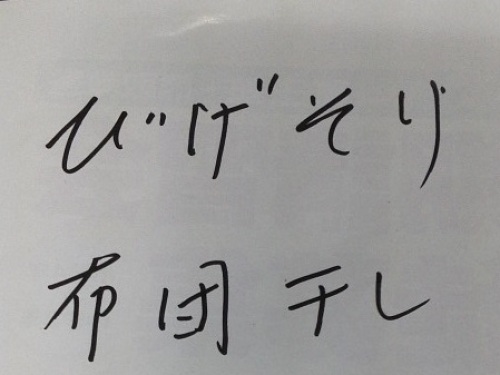 びげそり
布団干し